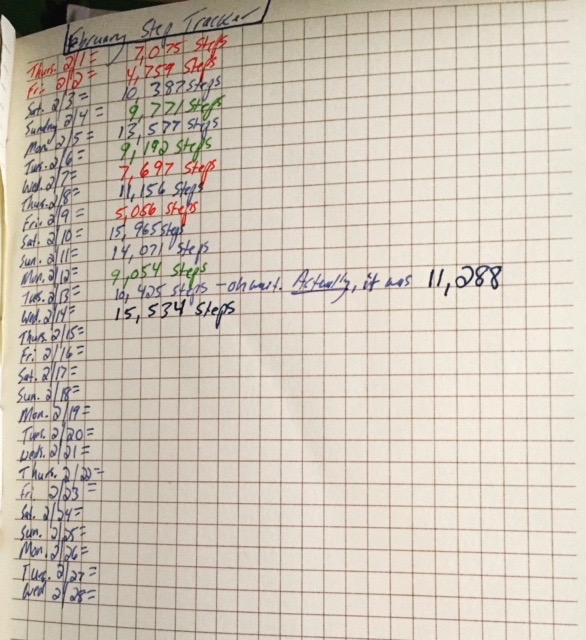 February Step Tracker
Thurs. 2/1= 7,075 Steps
Fri. 2/2= 4,759 Steps
Sat. 2/3= 10,387 steps
Sunday 2/4= 9,771 Steps
Mon. 2/5= 13,577 Steps
Tues. 2/6= 9,192 Steps
Wed. 2/7= 7,697 Steps
Thurs. 2/8= 11,156 Steps
Fri. 2/9= 5,056 Steps
Sat. 2/10= 15,965 Steps
Sun. 2/11= 14,071 Steps
Mon. 2/12= 9,054 Steps
Tues. 2/13= 10,425 Steps - oh wait. Actually, it was 11,288
Wed. 2/14= 15,534 Steps
Thurs. 2/15=
Fri. 2/16=
Sat. 2/17=
Sun. 2/18=
Mon. 2/19=
Tues. 2/20=
Weds. 2/21=
Thurs. 2/22=
Fri. 2/23=
Sat. 2/24=
Sun. 2/25=
Mon. 2/26=
Tues. 2/27=
Wed 2/28=